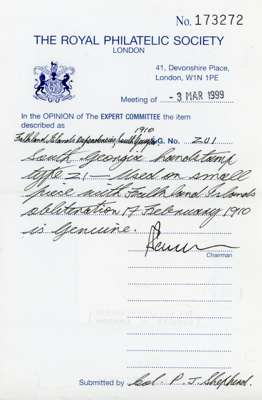 No. 173272
THE ROYAL PHILATELIC SOCIETY
LONDON
41, Devonshire Place,
London, W1N 1PE
Meeting of - 3 MAR 1999
In the OPINION of The EXPERT COMMITTEE the item
described as 1910
Falkland Islands Dependencies South Georgia S.G. No. Z01
South Georgia handstamp
type Z1 — Used on small
piece with Falkland Islands
obliteration 17 February 1910
is genuine.
Chairman
Submitted by Col. P. J. Shepherd.